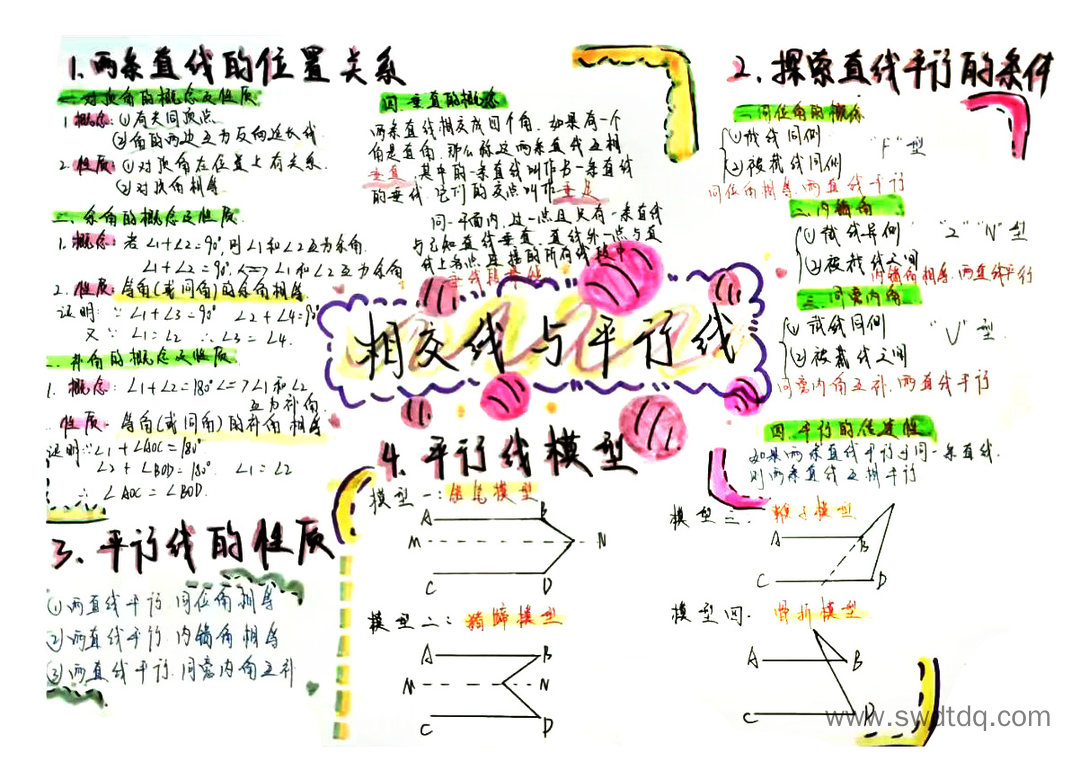 1.两条直线的位置关系
一.对顶角的概念及性质
1.概念:①有共同顶点
②角的两边互为反向延长线
2.性质:①对顶角在位置上有关系.
②对顶角相等
二.余角的概念及性质
1.概念:若∠1+∠2=90°,则∠1和∠2互为余角.
∠1+∠2=90°<=>∠1和∠2互为余角
2.性质:等角(或同角)的余角相等.
证明:∵∠1+∠3=90° ∠2+∠4=90°
又∵∠1=∠2 ∴∠3=∠4.
补角的概念及性质
1.概念:∠1+∠2=180°<=>∠1和∠2
互为补角.
性质:等角(或同角)的补角相等
证明:∵∠1+∠AOC=180°
∠2+∠BOD=180° ∠1=∠2
∴∠AOC=∠BOD.
四.垂直的概念
两条直线相交成四个角,如果有一个
角是直角,那么称这两条直线互相
垂直,其中的一条直线叫作另一条直线
的垂线,它们的交点叫作垂足
同一平面内,过一点且只有一条直线
与已知直线垂直,直线外一点与直
线上各点连接的所有线段中
垂线段最短
相交线与平行线
2.探索直线平行的条件
一.同位角的概念
①截线同侧
②被截线同侧
"F"型
同位角相等,两直线平行
二.内错角
①截线异侧
②被截线之间
"Z" "N"型
内错角相等,两直线平行
三.同旁内角
①截线同侧
②被截线之间
"U"型
同旁内角互补,两直线平行
四.平行的传递性
如果两条直线平行与同一条直线.
则两条直线互相平行
3.平行线的性质
①两直线平行.同位角相等
②两直线平行.内错角相等
③两直线平行.同旁内角互补
4.平行线模型
模型一:铅笔模型
A B
M N
C D
模型二:猪蹄模型
A B
M N
C D
模型三.
模型
A B
C D
模型四.骨折模型
A B
C D
www.swdtdq.com